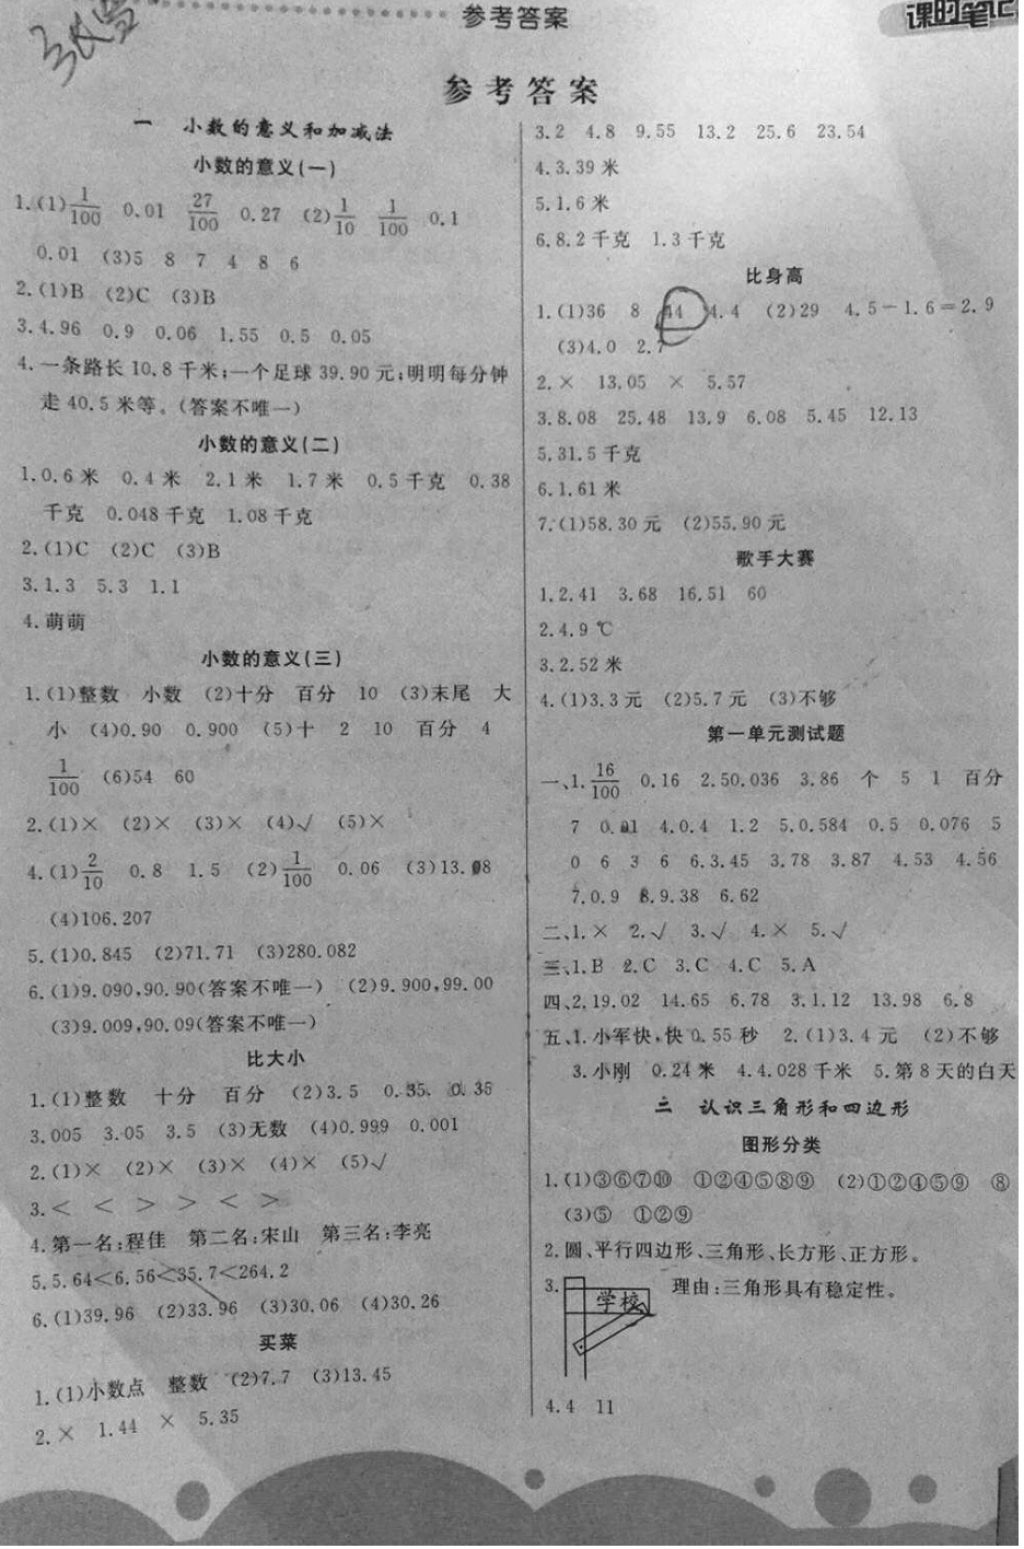 参考答案
课时笔记
参考答案
一 小数的意义和加减法
小数的意义(一)
1.(1)1/100 0.01 27/100 0.27 (2)1/10 1/100 0.1
0.01 (3)5 8 7 4 8 6
2.(1)B (2)C (3)B
3.4.96 0.9 0.06 1.55 0.5 0.05
4.一条路长10.8千米;一个足球39.90元;明明每分钟
走40.5米等。(答案不唯一)
小数的意义(二)
1.0.6米 0.4米 2.1米 1.7米 0.5千克 0.38
千克 0.048千克 1.08千克
2.(1)C (2)C (3)B
3.1.3 5.3 1.1
4.萌萌
小数的意义(三)
1.(1)整数 小数 (2)十分 百分 10 (3)末尾 大
小 (4)0.90 0.900 (5)十 2 10 百分 4
1/100 (6)54 60
2.(1)× (2)× (3)× (4)√ (5)×
4.(1)2/10 0.8 1.5 (2)1/100 0.06 (3)13.08
(4)106.207
5.(1)0.845 (2)71.71 (3)280.082
6.(1)9.090,90.90(答案不唯一) (2)9.900,99.00
(3)9.009,90.09(答案不唯一)
比大小
1.(1)整数 十分 百分 (2)3.5 0.35 0.35
3.005 3.05 3.5 (3)无数 (4)0.999 0.001
2.(1)× (2)× (3)× (4)× (5)√
3.< < > > < >
4.第一名:程佳 第二名:宋山 第三名:李亮
5.5.64<6.56<35.7<264.2
6.(1)39.96 (2)33.96 (3)30.06 (4)30.26
买菜
1.(1)小数点 整数 (2)7.7 (3)13.45
2.× 1.44 × 5.35
3.2 4.8 9.55 13.2 25.6 23.54
4.3.39米
5.1.6米
6.8.2千克 1.3千克
比身高
1.(1)36 8 44 4.4 (2)29 4.5-1.6=2.9
(3)4.0 2.7
2.× 13.05 × 5.57
3.8.08 25.48 13.9 6.08 5.45 12.13
5.31.5千克
6.1.61米
7.(1)58.30元 (2)55.90元
歌手大赛
1.2.41 3.68 16.51 60
2.4.9℃
3.2.52米
4.(1)3.3元 (2)5.7元 (3)不够
第一单元测试题
一、1.16/100 0.16 2.50.036 3.86 个 5 1 百分
7 0.01 4.0.4 1.2 5.0.584 0.5 0.076 5
0 6 3 6 6.3.45 3.78 3.87 4.53 4.56
7.0.9 8.9.38 6.62
二、1.× 2.√ 3.√ 4.× 5.√
三、1.B 2.C 3.C 4.C 5.A
四、2.19.02 14.65 6.78 3.1.12 13.98 6.8
五、1.小军快,快0.55秒 2.(1)3.4元 (2)不够
3.小刚 0.24米 4.4.028千米 5.第8天的白天
二 认识三角形和四边形
图形分类
1.(1)③⑥⑦⑩ ①②④⑤⑧⑨ (2)①②④⑤⑨ ⑧
(3)⑤ ①②⑨
2.圆、平行四边形、三角形、长方形、正方形。
3. 学校 理由:三角形具有稳定性。
4.4 11